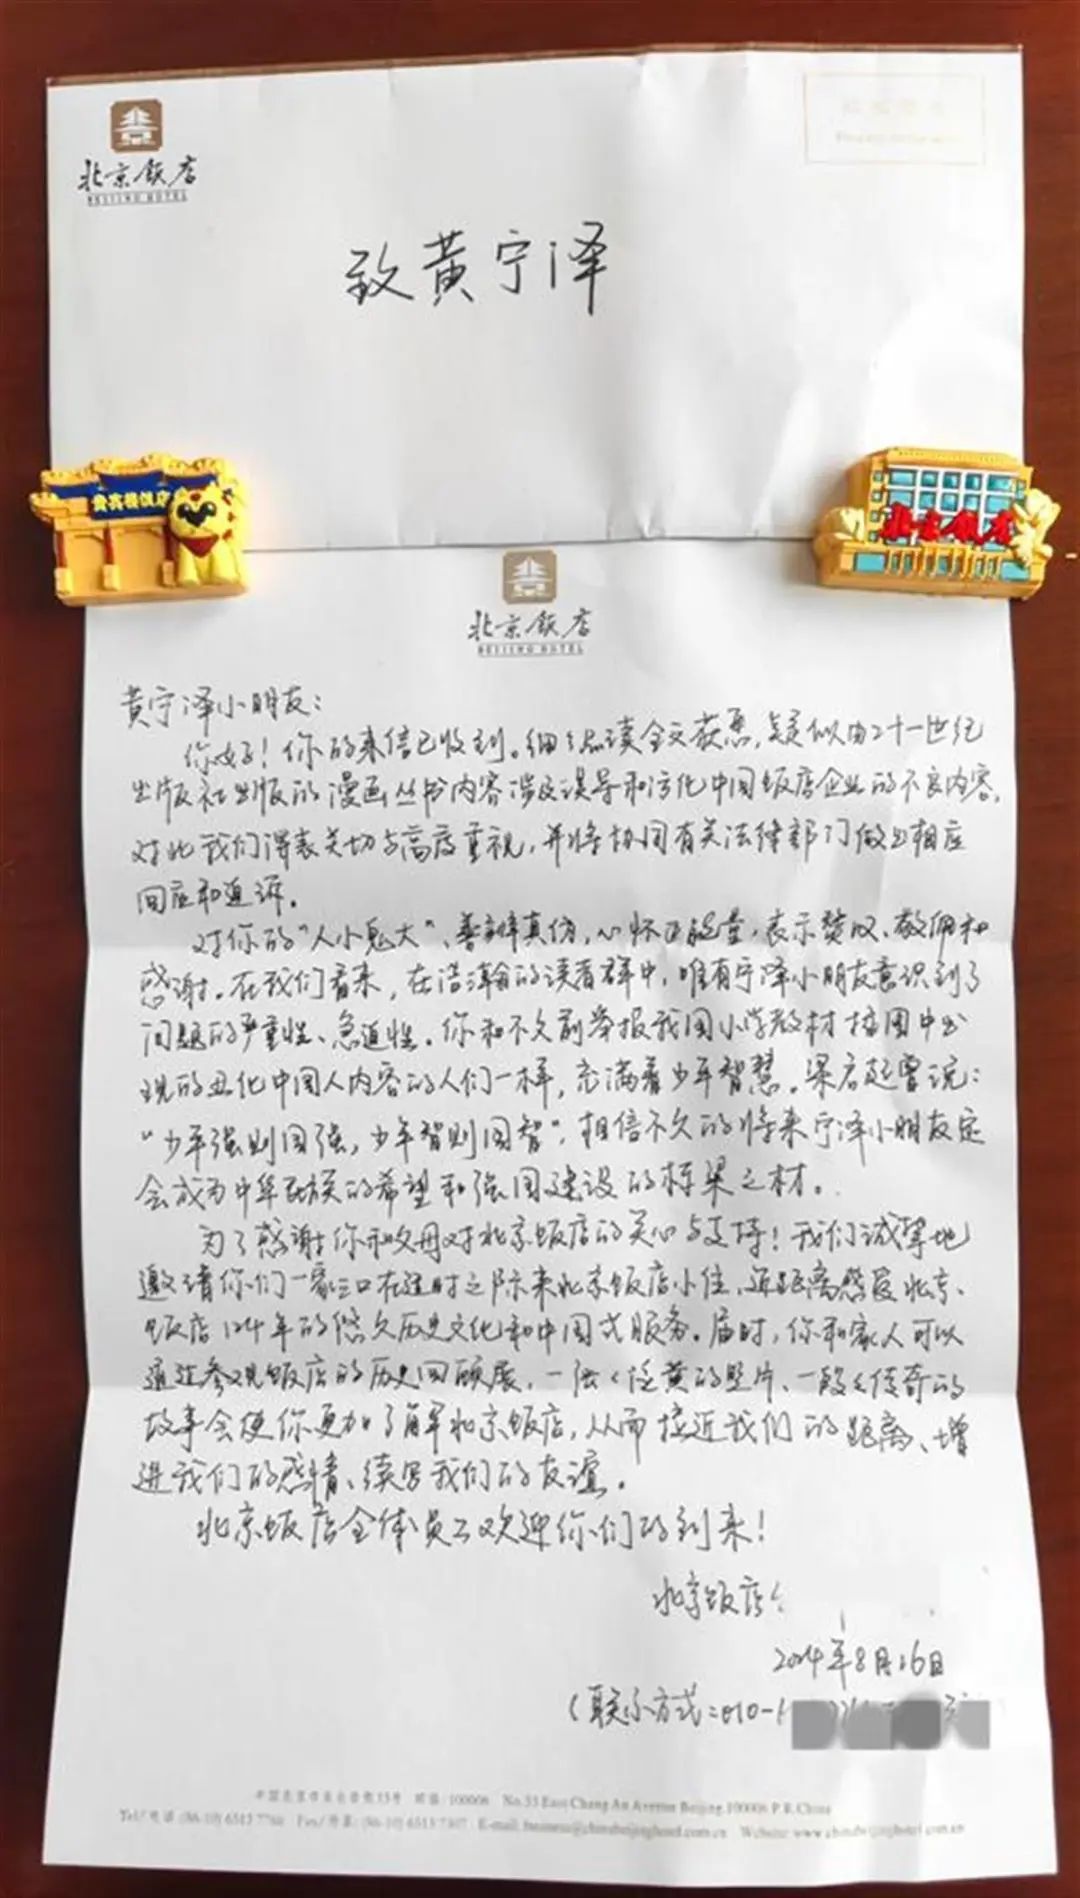 北京饭店
BEIJING HOTEL
致黄宁泽
贵宾楼饭店
北京饭店
北京饭店
BEIJING HOTEL
黄宁泽小朋友：
你好！你的来信已收到。细细品读全文获悉，疑似由二十一世纪
出版社出版的漫画丛书内容涉及误导和污化中国饭店企业的不良内容，
对此我们深表关切与高度重视，并将协同有关法律部门做出相应
回应和追诉。
对你的“人小鬼大”、善辨真伪，心怀正能量，表示赞叹、敬佩和
感谢。在我们看来，在浩瀚的读者群中，唯有宁泽小朋友意识到了
问题的严重性、急迫性。你和不久前举报我国小学教材插图中出
现的丑化中国人内容的人们一样，充满着少年智慧。梁启超曾说：
“少年强则国强，少年智则国智”，相信不久的将来宁泽小朋友定
会成为中华民族的希望和强国建设的栋梁之材。
为了感谢你和父母对北京饭店的关心与支持！我们诚挚地
邀请你们一家三口在适时之际来北京饭店小住，近距离感受北京
饭店124年的悠久历史文化和中国式服务。届时，你和家人可以
通过参观饭店的历史回顾展，一张张泛黄的照片、一段段传奇的
故事会使你更加了解北京饭店，从而拉近我们的距离、增
进我们的感情、续写我们的友谊。
北京饭店全体员工欢迎你们的到来！
北京饭店
2024年8月26日
（联系方式：010-
中国北京市东长安街33号 邮编：100006 No.33 East Chang An Avenue Beijing,100006 P.R.China
Tel/电话:(86-10) 6513 7766 Fax/传真:(86-10) 6513 7307 E-mail: business@chinabeijinghotel.com.cn Website: www.chinabeijinghotel.com.cn